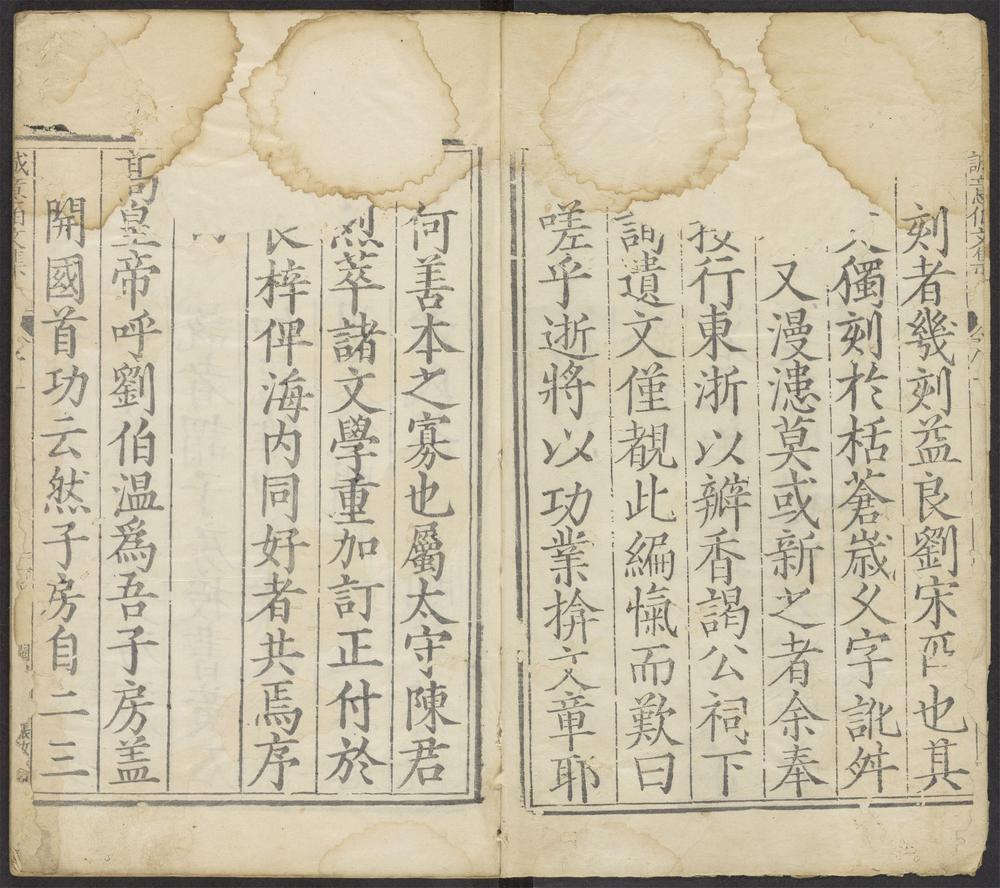 誠意伯文集
刻者幾刻益良劉宋也其
獨刻於栝蒼歲久字訛舛
又漫漶莫或新之者余奉
行東浙以瓣香謁公祠下
詢遺文僅覩此編愾而歎曰
嗟乎逝將以功業揜文章耶
何善本之寡也屬太守陳君
烈萃諸文學重加訂正付於
良梓俾海内同好者共焉序
高皇帝呼劉伯温爲吾子房盖
開國首功云然子房自二三
誠意伯文集